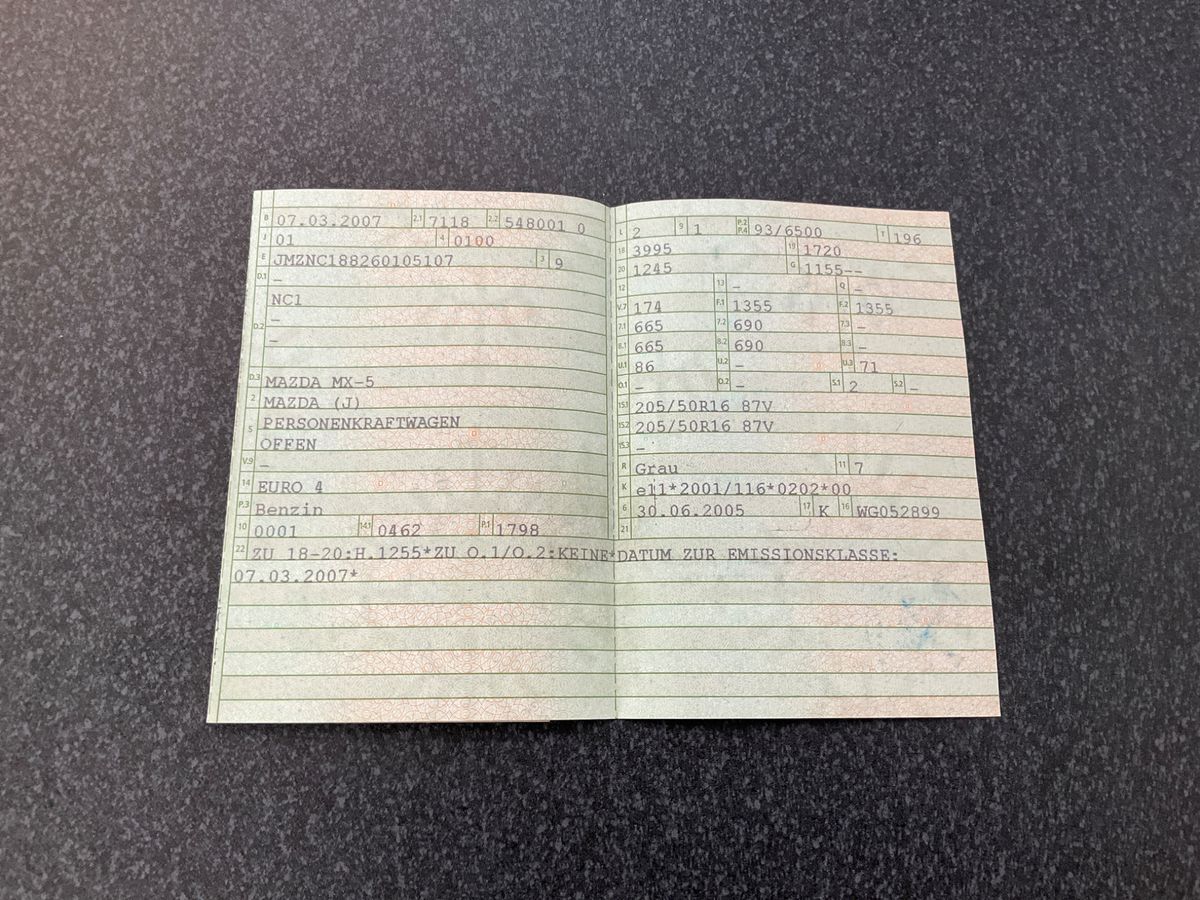 B 07.03.2007 2.1 7118 2.2 548001 0
J 01 4 0100
E JMZNC188260105107 3 9
D.1 –
NC1
D.2 –
–
D.3 MAZDA MX-5
2 MAZDA (J)
5 PERSONENKRAFTWAGEN
OFFEN
V.9 –
14 EURO 4
P.3 Benzin
10 0001 14.1 0462 P.1 1798
L 2 9 1 P.2 P.4 93/6500 T 196
18 3995 19 1720
20 1245 G 1155--
12 13 – Q –
V.7 174 F.1 1355 F.2 1355
7.1 665 7.2 690 7.3 –
8.1 665 8.2 690 8.3 –
U.1 86 U.2 – U.3 71
O.1 – O.2 – S.1 2 S.2 –
15.1 205/50R16 87V
15.2 205/50R16 87V
15.3 –
R Grau 11 7
K e11*2001/116*0202*00
6 30.06.2005 17 K 16 WG052899
21
22 ZU 18-20:H.1255*ZU O.1/O.2:KEINE*DATUM ZUR EMISSIONSKLASSE:
07.03.2007*